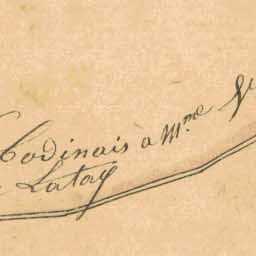 Codinais a Mme
Latay